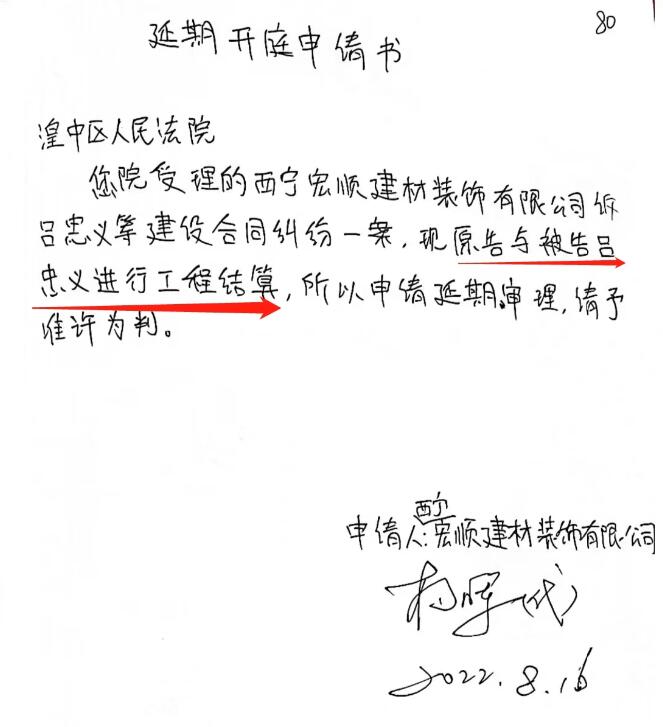 80
延期开庭申请书
湟中区人民法院
您院受理的西宁宏顺建材装饰有限公司诉
吕忠义等建设合同纠纷一案，现原告与被告吕
忠义进行工程结算，所以申请延期审理，请予
准许为判。
西宁
申请人：宏顺建材装饰有限公司
(代)
2022.8.16